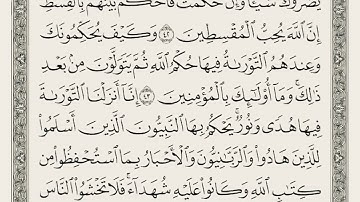 يَضُرُّوكَ شَيْـًٔا وَإِنْ حَكَمْتَ فَٱحْكُم بَيْنَهُم بِٱلْقِسْطِ
إِنَّ ٱللَّهَ يُحِبُّ ٱلْمُقْسِطِينَ ٤٢ وَكَيْفَ يُحَكِّمُونَكَ
وَعِندَهُمُ ٱلتَّوْرَىٰةُ فِيهَا حُكْمُ ٱللَّهِ ثُمَّ يَتَوَلَّوْنَ مِنۢ بَعْدِ
ذَٰلِكَ ۚ وَمَآ أُو۟لَـٰٓئِكَ بِٱلْمُؤْمِنِينَ ٤٣ إِنَّآ أَنزَلْنَا ٱلتَّوْرَىٰةَ
فِيهَا هُدًى وَنُورٌ ۚ يَحْكُمُ بِهَا ٱلنَّبِيُّونَ ٱلَّذِينَ أَسْلَمُوا۟
لِلَّذِينَ هَادُوا۟ وَٱلرَّبَّـٰنِيُّونَ وَٱلْأَحْبَارُ بِمَا ٱسْتُحْفِظُوا۟ مِن
كِتَـٰبِ ٱللَّهِ وَكَانُوا۟ عَلَيْهِ شُهَدَآءَ ۚ فَلَا تَخْشَوُا۟ ٱلنَّاسَ